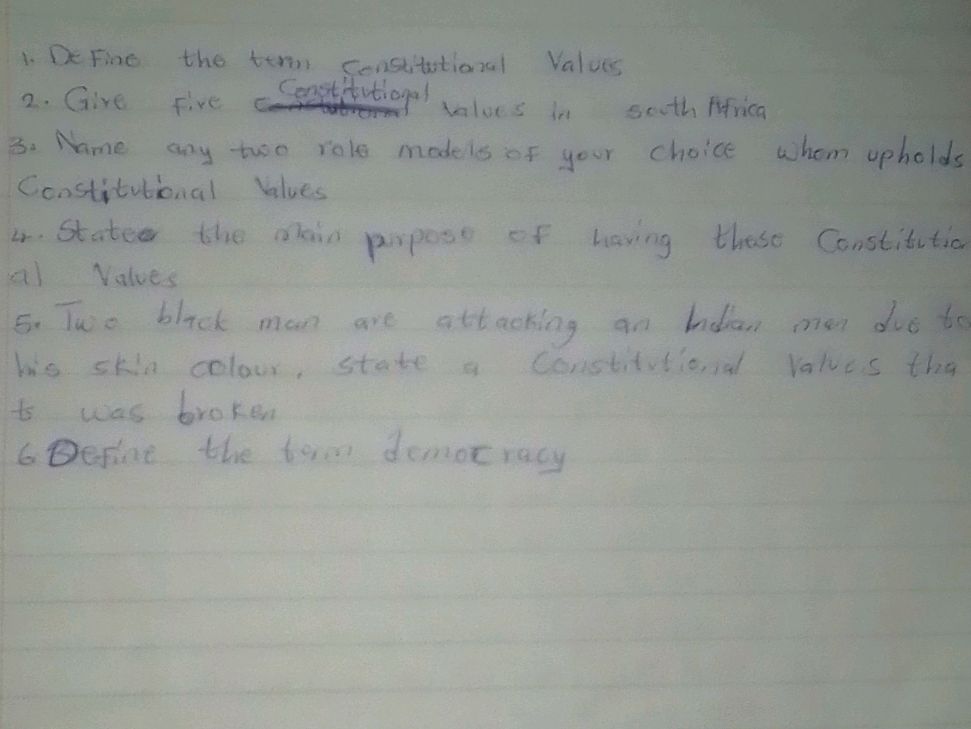 1. Define the term Constitutional Values
2. Give five Constitutional Values in south Africa
3. Name any two role models of your choice whom upholds
Constitutional Values
4. State the main purpose of having these Constitution
al Values
5. Two black man are attacking an Indian man due to
his skin colour, state a Constitutional Values tha
t was broken
6 Define the term democracy